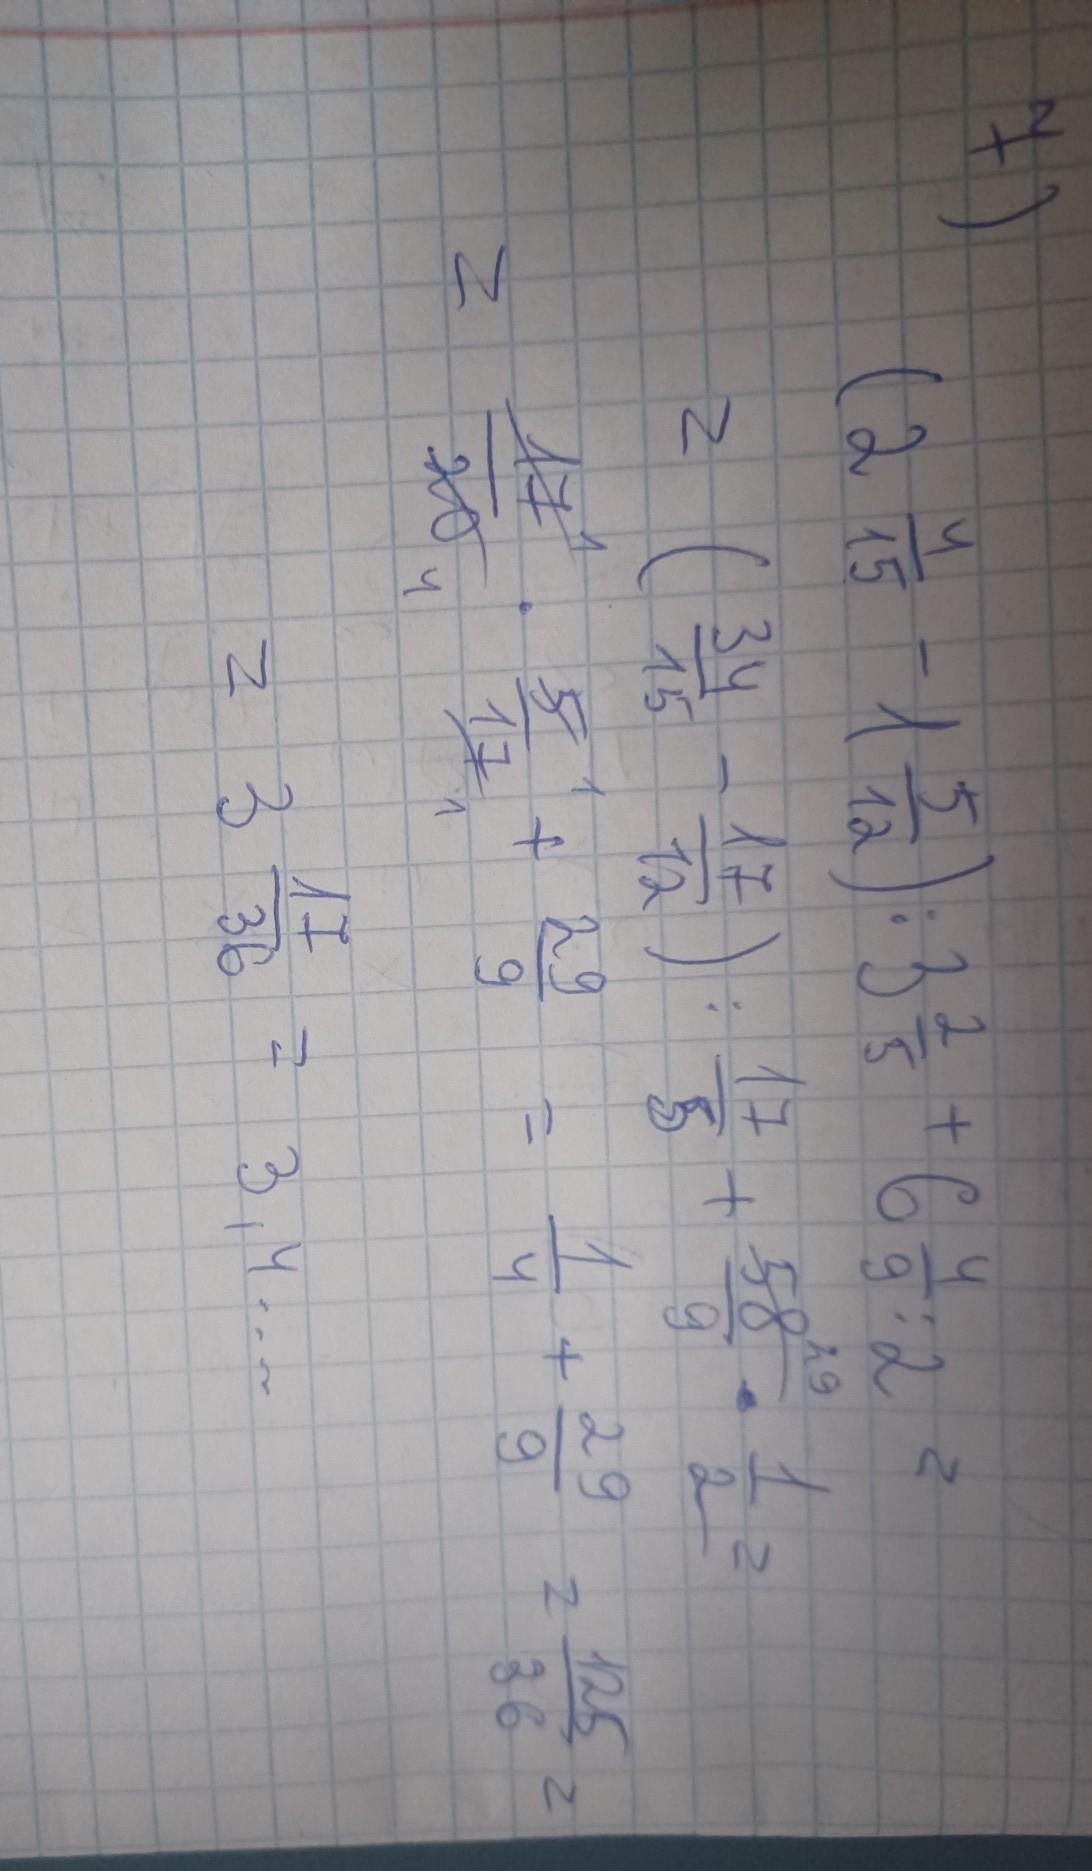 7)
(2 4/15 - 1 5/12) : 3 2/5 + 6 4/9 : 2 =
= (34/15 - 17/12) : 17/5 + 58/9 29 · 1/2 =
= 17/20 1 4 · 5/17 1 1 + 29/9 = 1/4 + 29/9 = 125/36 =
= 3 17/36 = 3,4...